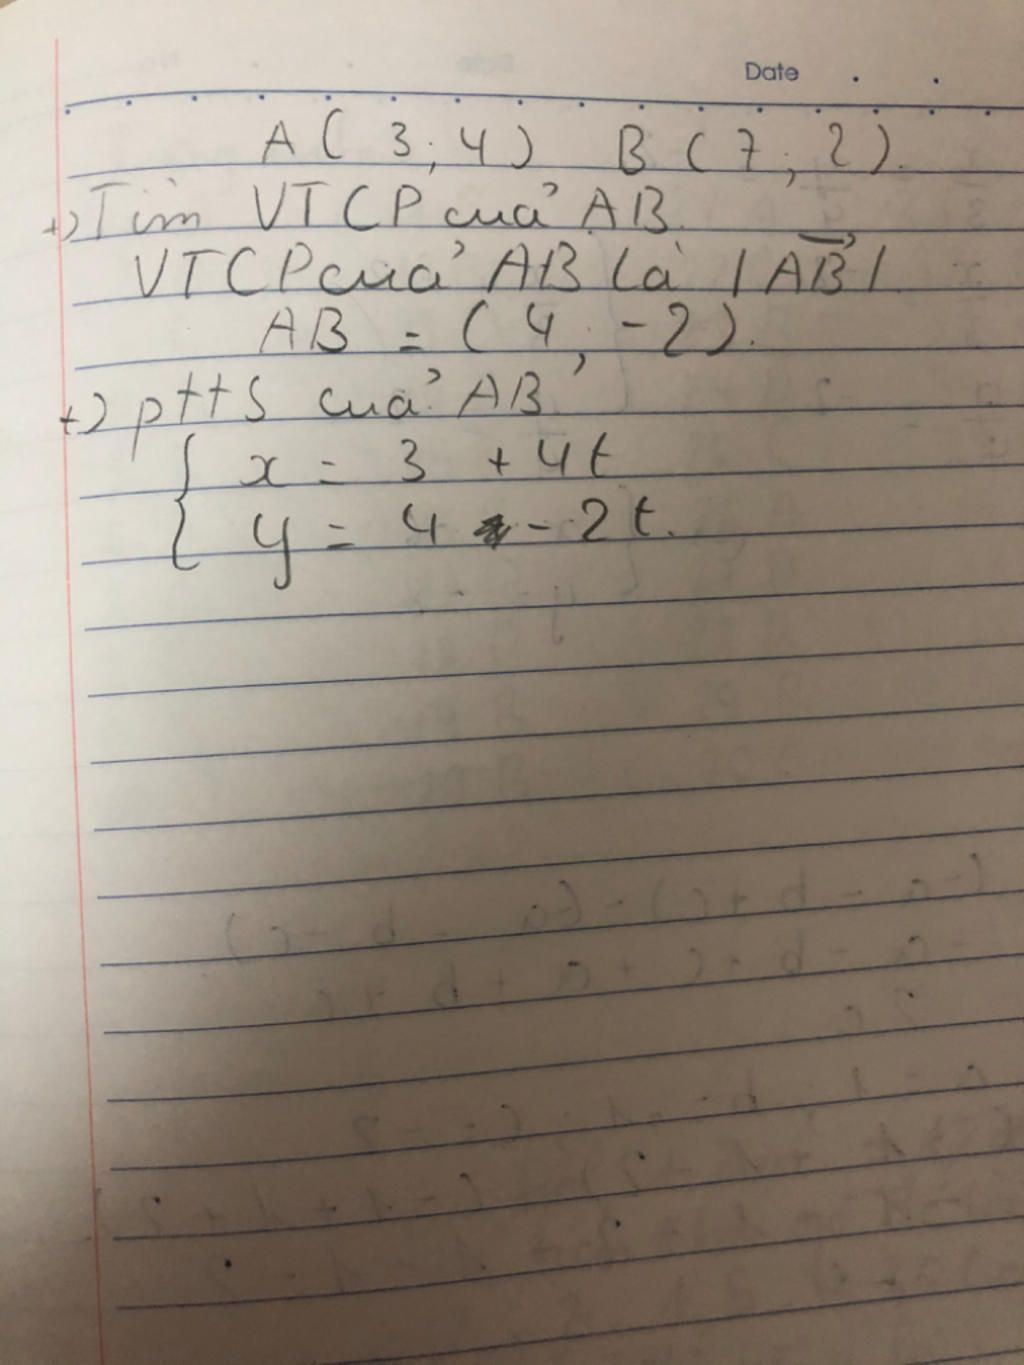 Date
A ( 3 ; 4 ) B ( 7 ; 2 ).
+) Tìm VTCP của AB.
VTCP của AB là |\overrightarrow{AB}|
AB = ( 4 ; -2 ).
+) pttS của AB
{ x = 3 + 4t
y = 4 - 2t.